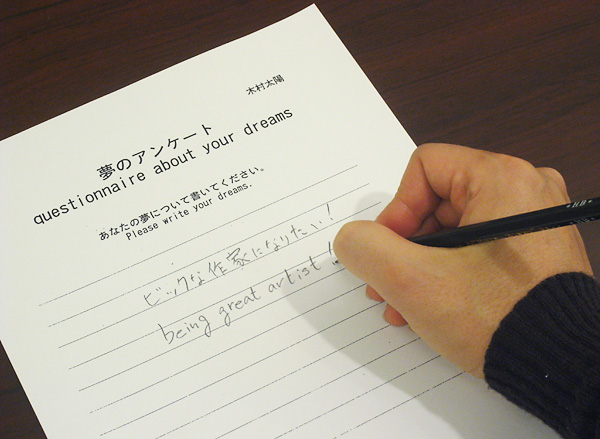 木村太陽
夢のアンケート
questionnaire about your dreams
あなたの夢について書いてください。
Please write your dreams.
ビックな作家になりたい!
being great artist!